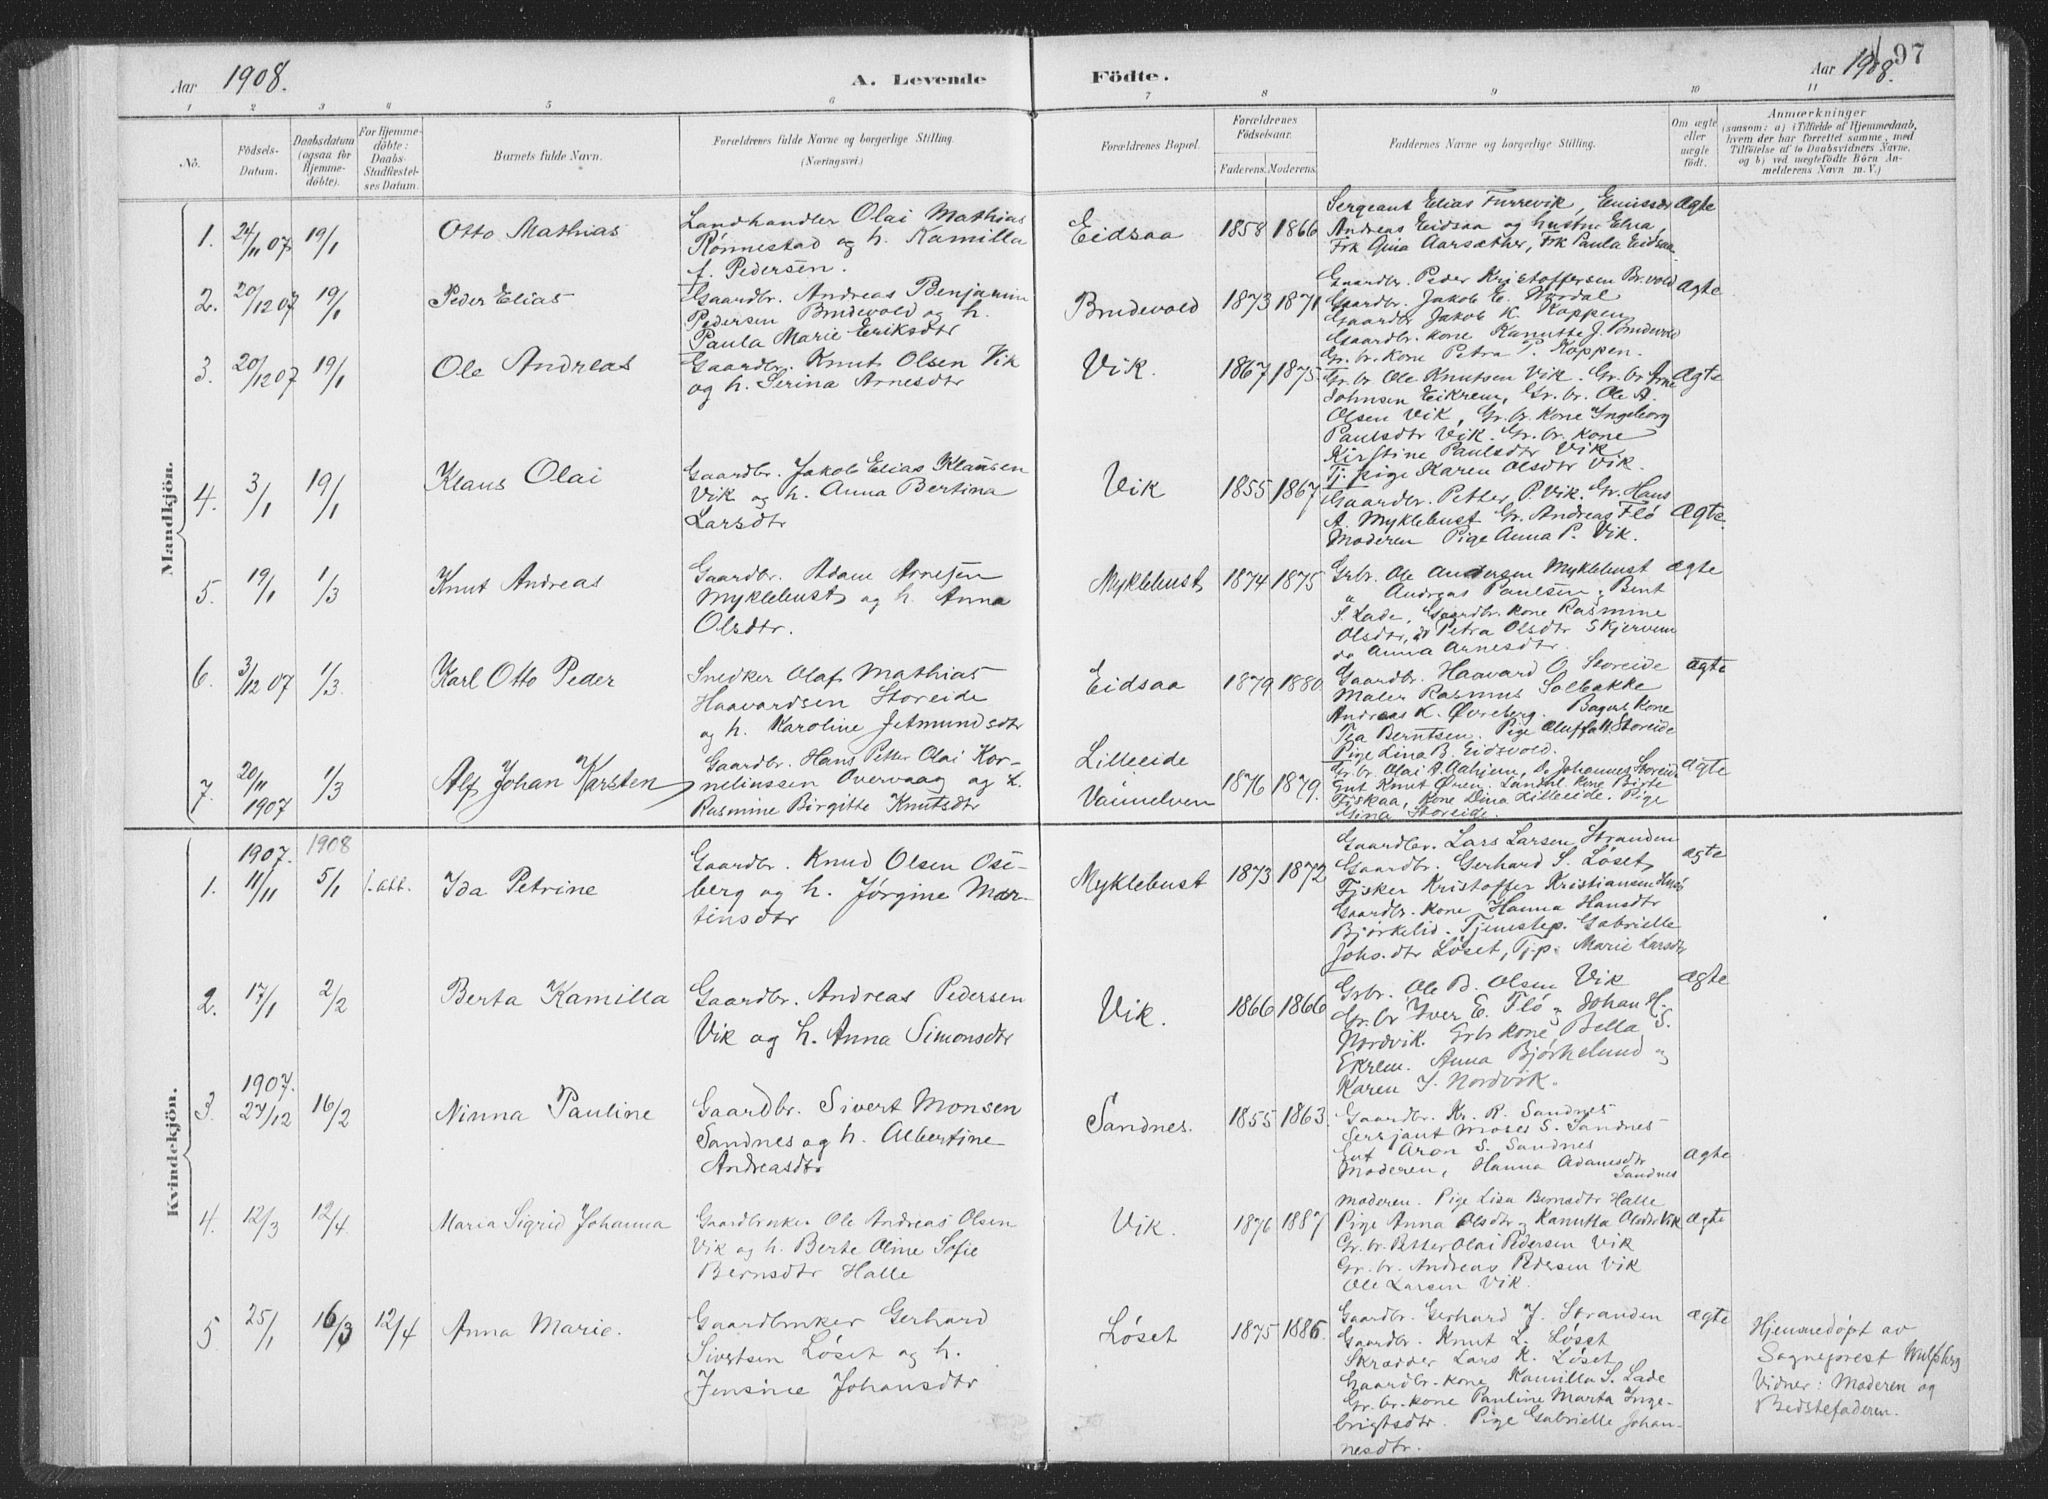 Aar 1908.
A. Levende
Födte.
Aar 1908.
97
1 2 3 4 5 6 7 8 9 10 11
No.
Födsels-
Datum.
Daabsdatum
(ogsaa for
Hjemme-
döbte).
For Hjemme-
döbte:
Daabs-
Stadfæstel-
ses Datum.
Barnets fulde Navn.
Forældrenes fulde Navne og borgerlige Stilling.
(Næringsvei.)
Forældrenes Bopæl.
Forældrenes
Födselsaar.
Faderens. Moderens.
Faddernes Navne og borgerlige Stilling.
Om ægte
eller
uægte
födt.
Anmærkninger
(saasom: a) i Tilfælde af Hjemmedaab,
hvem der har forrettet samme, med
Tilföielse af to Daabsvidners Navne,
og b) ved uægtefödte Börn An-
melderens Navn m. V.)
Mandkjön.
1. 24/11 07 19/1
Otto Mathias
Landhandler Olai Mathias
Rönnestad og h. Kamilla
f. Pedersen.
Eidsaa
1858 1866
Sergeant Elias Furrevik, Emissær
Andreas Eidsaa og hustru Elna,
Frk Gina Aarsæther, Frk Paula Eidsaa
Ægte
2. 20/12 07 19/1
Peder Elias
Gaardbr. Andreas Benjamin
Pedersen Brudevold og h.
Paula Marie Eriksdtr
Brudevold
1873 1871
Gaardbr. Peder Kristoffersen Br.vold
Gaardbr. Jakob E. Nordal
Gaardbr Jakob K. Koppen
Gaardbr. kone Kanutte J. Brudevold
Gr. br. kone Petra T. Koppen.
Ægte
3. 20/12 07 19/1
Ole Andreas
Gaardbr. Knut Olsen Vik
og h. Serina Arnesdtr
Vik.
1867 1875.
Gr. br Ole Knutsen Vik. Gr. br Arne
Johnsen Eikrem, Gr. br. Ole A.
Olsen Vik, Gr. br. kone Ingeborg
Paulsdtr Vik. Gr. br. kone
Kirstine Paulsdtr Vik
Tj. pige Karen Olsdtr Vik.
Ægte
4. 3/1 19/1
Klaus Olai
Gaardbr. Jakob Elias Klausen
Vik og h. Anna Bertina
Larsdtr
Vik
1855 1867
Gaardbr. Petter P. Vik. Gr. Hans
A. Myklebust Gr. Andreas Flö
Moderen Pige Anna P. Vik.
Ægte.
5. 19/1 1/3
Knut Andreas
Gaardbr. Adam Arnesen
Myklebust og h. Anna
Olsdtr.
Myklebust
1874 1875
Grbr. Ole Andersen Myklebust
" Andreas Paulsen, Bent
S. Lade, Gaardbr. kone Rasmine
Olsdtr, do Petra Olsdtr Skjervem
do Anna Arnesdtr.
Ægte
6. 3/12 07 1/3.
Karl Otto Peder
Snedker Olaf Mathias
Haavardsen Storeide
og h. Karoline Jetmundsdtr
Eidsaa
1879 1880
Gaardbr. Haavard O. Storeide
Maler Rasmus Solbakke
Andreas K. Øvreberg. Bagers kone
Tea Berntsen. Pige Oluffa H. Storeide
Pige Lina B. Eidsvold.
Ægte
7. 20/11 1907 1/3
Alf Johan Karsten
Gaardbr. Hans Petter Olai Kor-
neliussen Overvaag og h.
Rasmine Birgitte Knutsdtr
Lilleeide
Vannelven
1876 1879.
Gr. br. Olai A. Aahjem, Do Johannes Storeide
Gut Knut Ören. Landhl. kone Birte
Fiskaa, Kone Dina Lilleeide. Pige
Gina Storeide.
Ægte
Kvindekjön.
1. 1907. 11/11 1908 5/1 f. att.
Ida Petrine
Gaardbr. Knud Olsen Ose-
berg og h. Jørgine Mar-
tinsdtr
Myklebust
1873 1872
Gaardbr. Lars Larsen Stranden
Gaardbr. Gerhard S. Løset,
Fisker Kristoffer Kristiansen
Gaardbr. kone Hanna Hansdtr
Bjørkelid. Tjenestep. Gabrielle
Johs.dtr Løset, Tjp. Marie Larsdtr
Ægte
2. 17/1 2/2
Berta Kamilla
Gaardbr. Andreas Pedersen
Vik og h. Anna Simonsdtr
Vik.
1866 1866
Grbr. Ole B. Olsen Vik
Gr. br Iver E. Flö, Johan H.
Nordvik. Grbr kone Bella S.
Ekrem. Anna Bjørkelund og
Karen J. Nordvik.
Ægte
3. 1907. 27/12 16/2
Ninna Pauline
Gaardbr. Sivert Monsen
Sandnes og h. Albertine
Andreasdtr
Sandnes.
1855 1863.
Gaardbr. Kr. R. Sandnes
Sersjant Moses S. Sandnes
Gut Aron S. Sandnes
Moderen, Hanna Adamsdtr
Sandnes
Ægte
4. 12/3 12/4
Maria Sigrid Johanna
Gaardbruker Ole Andreas Olsen
Vik og h. Berte Oline Sofie
Bernsdtr Halle
Vik.
1876 1887
Moderen. Pige Lisa Berntsdtr Halle
Pige Anna Olsdtr og Kanutta Olsdtr Vik
Gr. br. Petter Olai Pedersen Vik
Gr. br. Andreas Pedersen Vik
Ole Larsen Vik.
Ægte
5 25/1 16/3 12/4
Anna Marie.
Gaardbruker Gerhard
Sivertsen Løset og h.
Jensine Johansdtr
Løset
1875 1886.
Gaardbr. Gerhard J. Stranden
Gaardbr. Knut L. Løset
Skrædder Lars K. Løset
Gaardbr. kone Kamilla S. Lade
Gr. br. kone Pauline Marta Inge-
brigtsdtr. Pige Gabrielle Johan-
nesdtr.
Ægte
Hjemmedøpt av
Sogneprest Wulfsberg
Vidner: Moderen og
Bedstefaderen.